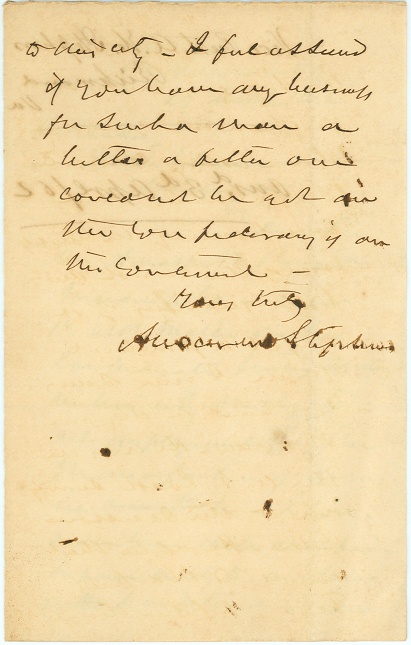 to this city – I feel assured
if you have any business
for such a man a
better a better one
could not be got in
the Confederacy is on
the Continent –
Yours truly
Alexander H Stephens